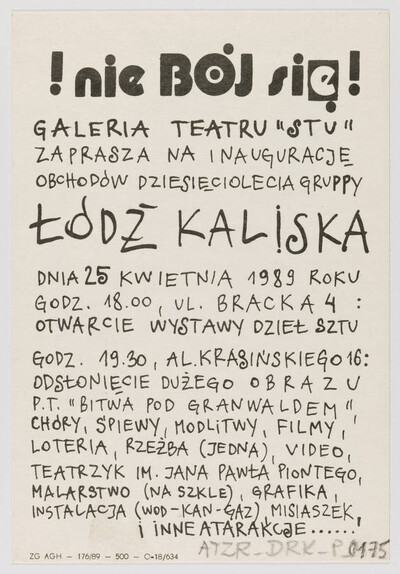 ! nie BÓJ się !
GALERIA TEATRU "STU"
ZAPRASZA NA INAUGURACJĘ
OBCHODÓW DZIESIĘCIOLECIA GRUPPY
ŁÓDŹ KALISKA
DNIA 25 KWIETNIA 1989 ROKU
GODZ. 18.00, UL. BRACKA 4 :
OTWARCIE WYSTAWY DZIEŁ SZTU
GODZ. 19.30, AL. KRASIŃSKIEGO 16:
ODSŁONIĘCIE DUŻEGO OBRAZU
P.T. "BITWA POD GRANWALDEM"
CHÓRY, ŚPIEWY, MODLITWY, FILMY,
LOTERIA, RZEŹBA (JEDNA), VIDEO,
TEATRZYK IM. JANA PAWŁA PIONTEGO,
MALARSTWO (NA SZKLE), GRAFIKA,
INSTALACJA (WOD-KAN-GAZ), MISIASZEK,
I INNE ATARAKCJE......
ZG AGH — 176/89 — 500 — O-18/634
ATZR_DRK_P_0175